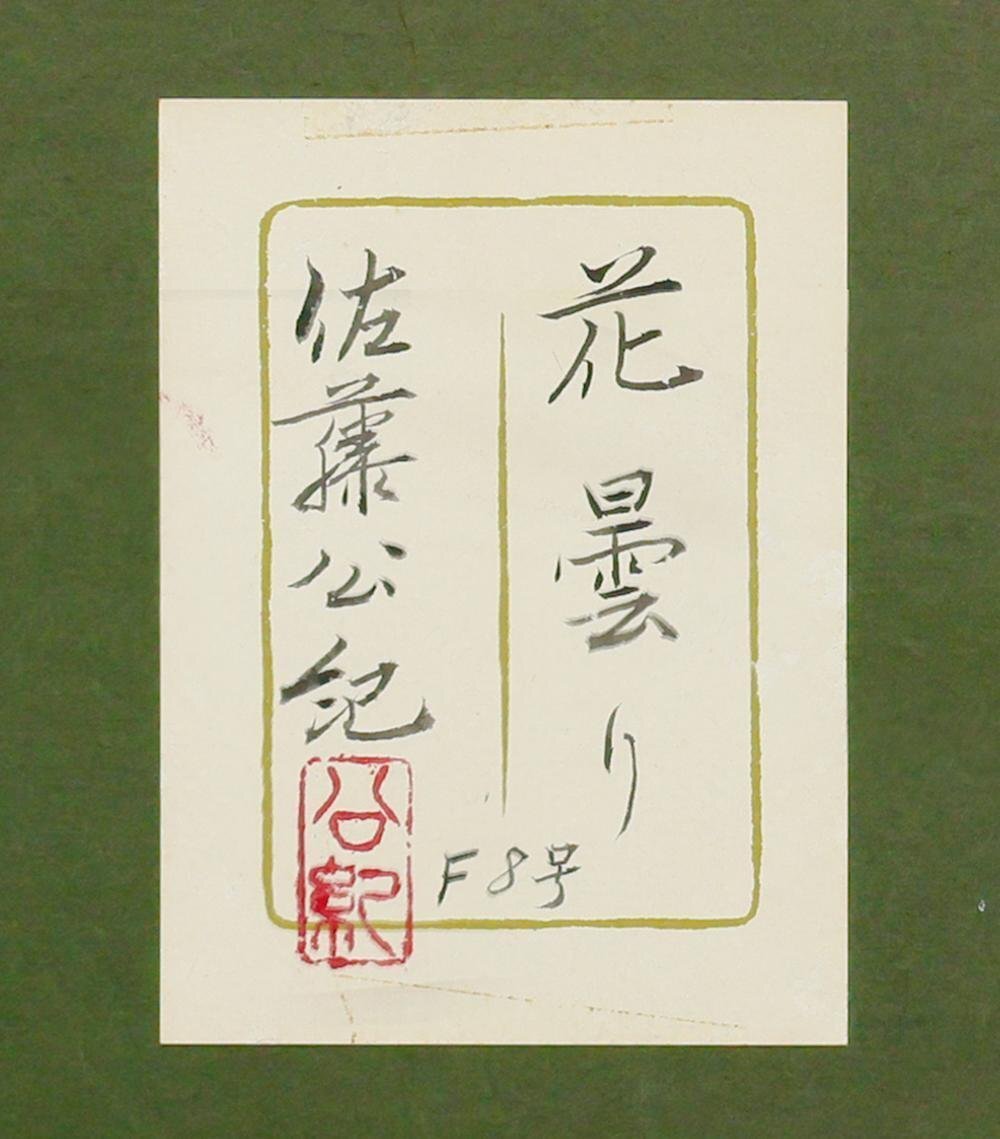 花曇り
F8号
佐藤公紀
公紀